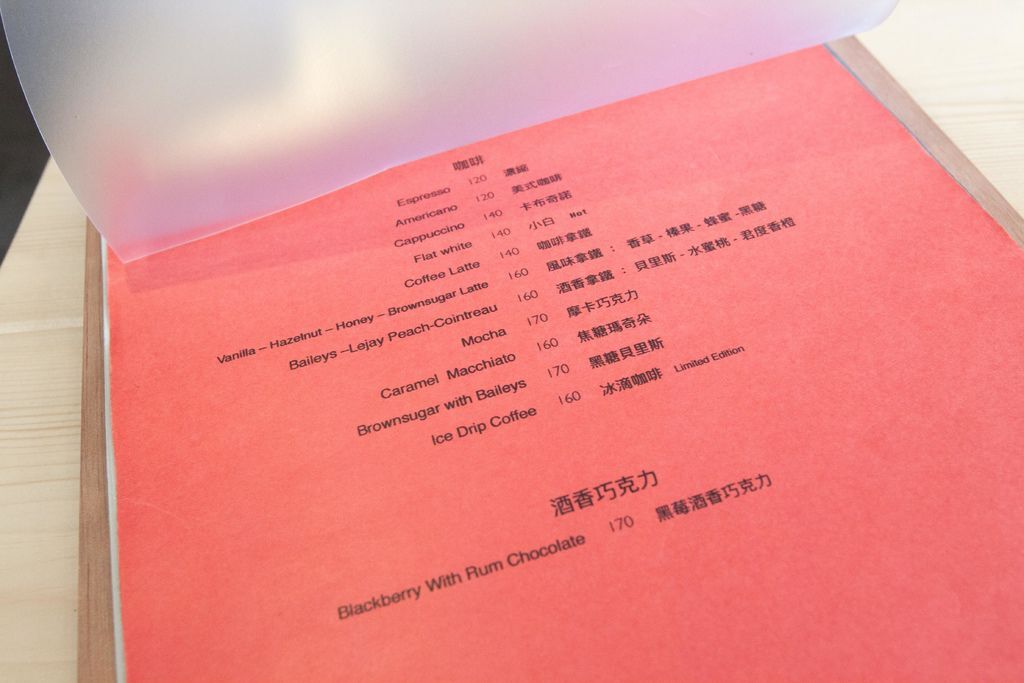 咖啡
Espresso 120 濃縮
Americano 120 美式咖啡
Cappuccino 140 卡布奇諾
Flat white 140 小白 Hot
Coffee Latte 140 咖啡拿鐵
Vanilla – Hazelnut – Honey – Brownsugar Latte 160 風味拿鐵 : 香草 - 榛果 - 蜂蜜 - 黑糖
Baileys –Lejay Peach-Cointreau 160 酒香拿鐵 : 貝里斯 - 水蜜桃 - 君度香橙
Mocha 170 摩卡巧克力
Caramel Macchiato 160 焦糖瑪奇朵
Brownsugar with Baileys 170 黑糖貝里斯
Ice Drip Coffee 160 冰滴咖啡 Limited Edition
酒香巧克力
Blackberry With Rum Chocolate 170 黑莓酒香巧克力